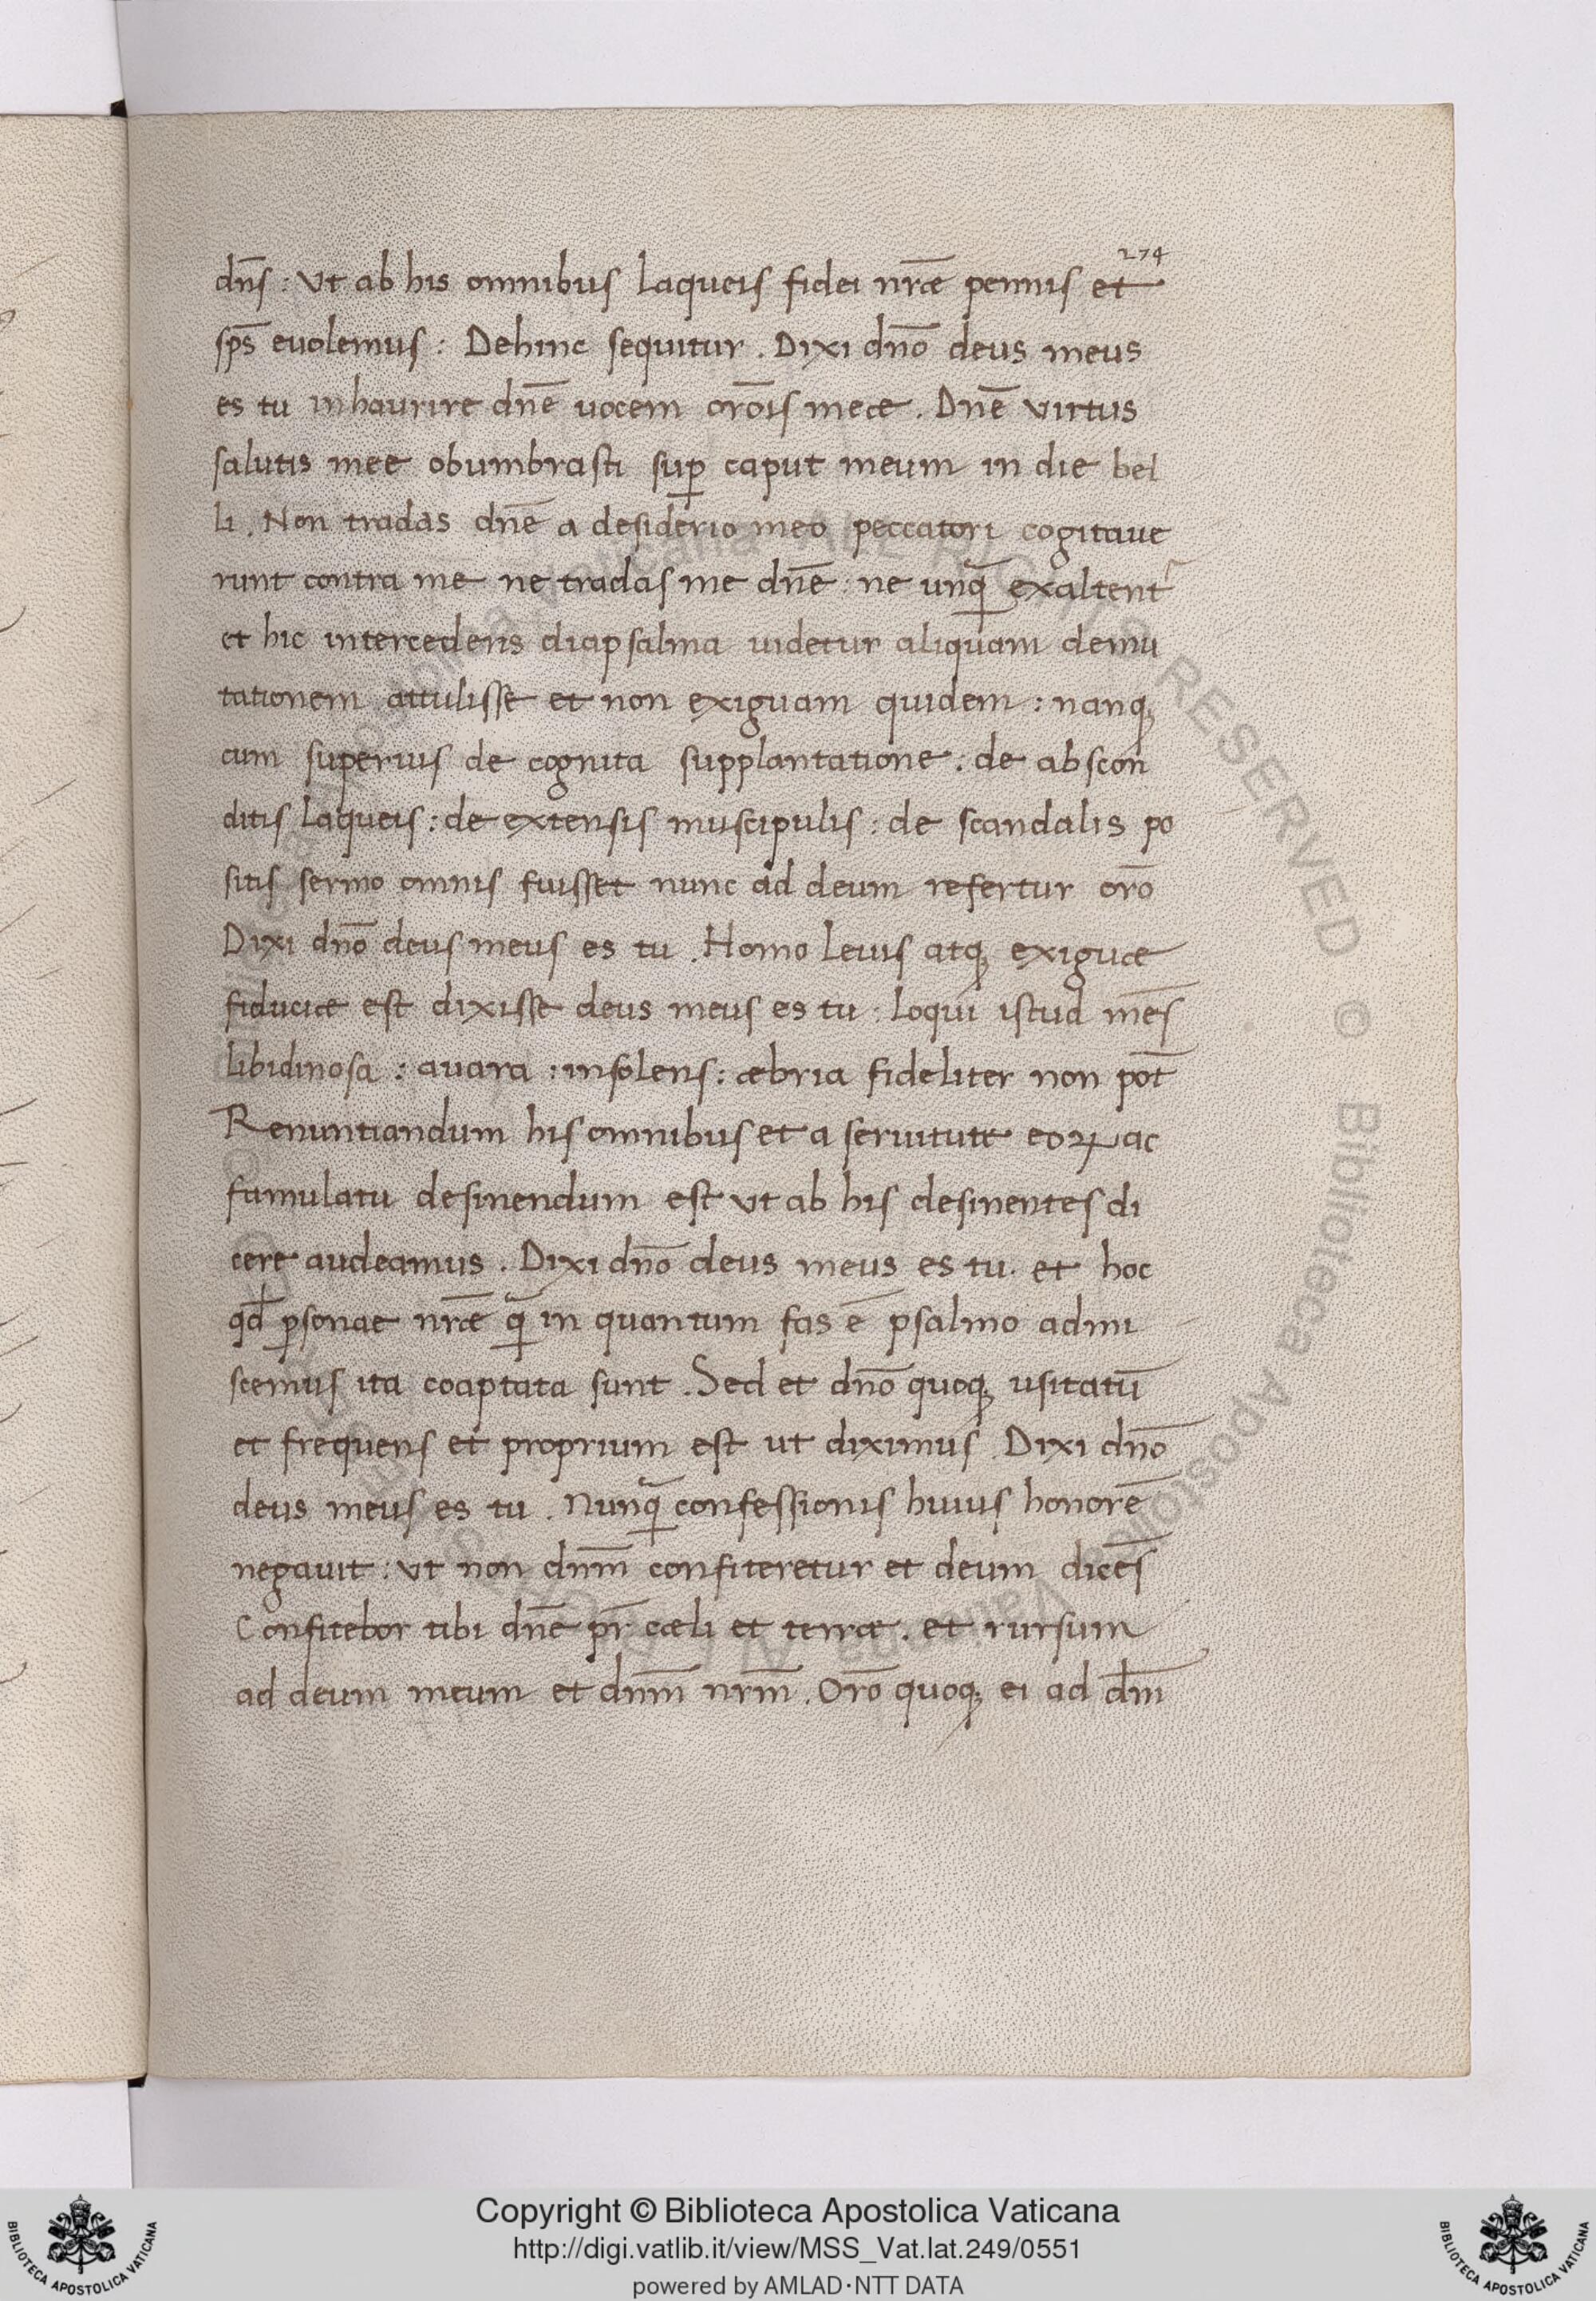 274
dn̄s : Vt ab his omnibus laqueis fidei nr̄æ pennis et
sp̄s euolemus : Dehinc sequitur . Dixi dn̄o deus meus
es tu inhaurire dn̄e uocem or̄ois meæ . Dn̄e virtus
salutis meę obumbrasti suꝑ caput meum in die bel
li . Non tradas dn̄e a desiderio meo peccatori cogitaue
runt contra me ne tradas me dn̄e : ne unq̄ exaltent᷑
et hic intercedens diapsalma uidetur aliquam demu
tationem attulisse et non exiguam quidem : nanq;
cum superius de cognita supplantatione : de abscon
ditis laqueis : de extensis muscipulis : de scandalis po
sitis sermo omnis fuisset nunc ad deum refertur or̄o
Dixi dn̄o deus meus es tu . Homo leuis atq; exiguæ
fiduciæ est dixisse deus meus es tu : loqui istud mēs
libidinosa : auara : insolens : æbria fideliter non pot̄
Renuntiandum his omnibus et a seruitute eoꝝ ac
famulatu desinendum est vt ab his desinentes di
cere audeamus . Dixi dn̄o deus meus es tu . et hoc
qd̄ ꝑsonae nr̄æ q̄ in quantum fas ē psalmo admi
scemus ita coaptata sunt . Sed et dn̄o quoq; usitatū
et frequens et proprium est ut diximus . Dixi dn̄o
deus meus es tu . Nunq̄ confessionis huius honorē
negauit : vt non dnm̄ confiteretur et deum dicēs
Confitebor tibi dn̄e pr̄ cæli et terræ . et rursum
ad deum meum et dnm̄ nrm̄ . Or̄o quoq; ei ad dm̄
Copyright © Biblioteca Apostolica Vaticana
http://digi.vatlib.it/view/MSS_Vat.lat.249/0551
powered by AMLAD·NTT DATA
BIBLIOTECA APOSTOLICA VATICANA
BIBLIOTECA APOSTOLICA VATICANA